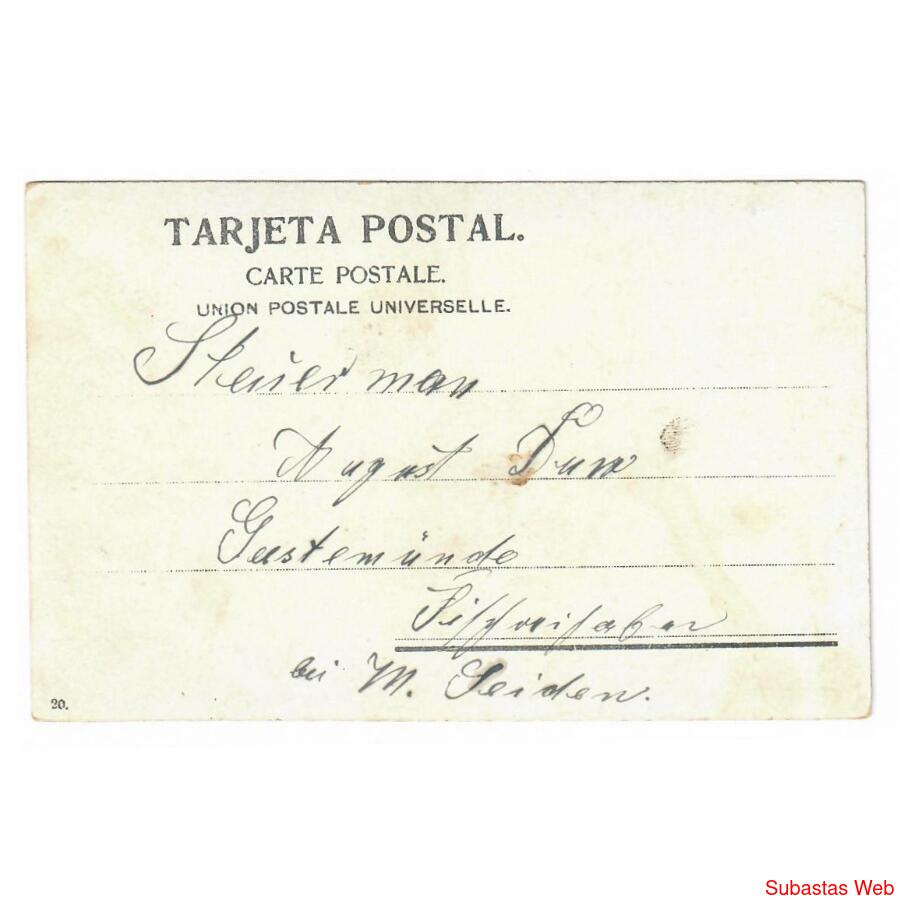 TARJETA POSTAL.
CARTE POSTALE.
UNION POSTALE UNIVERSELLE.
Steuerman
August
Geestemünde
bei M. Seiden.
20.
Subastas Web